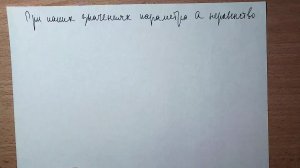 При каких значениях параметра a неравенство